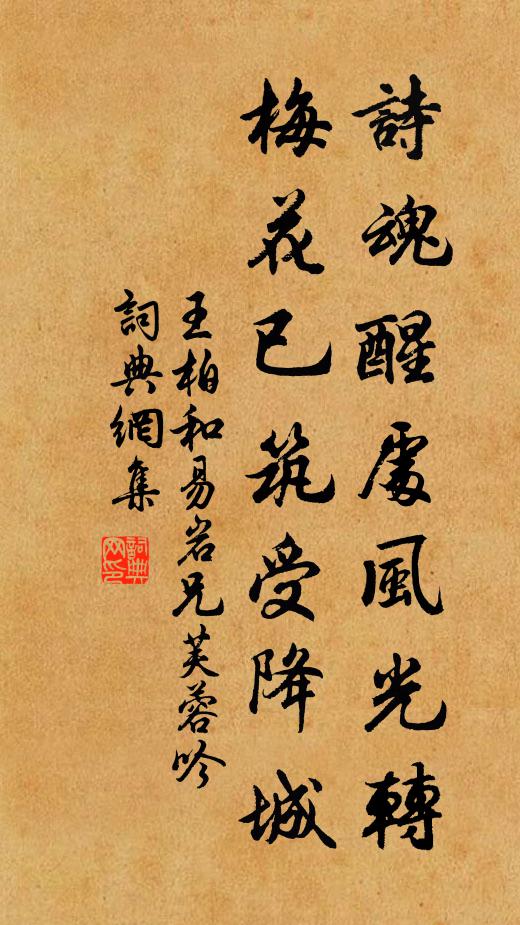 詩魂醒處風光轉
梅花已筑受降城
王柏和易岩兄芙蓉吟
詞典網集
詞典网印